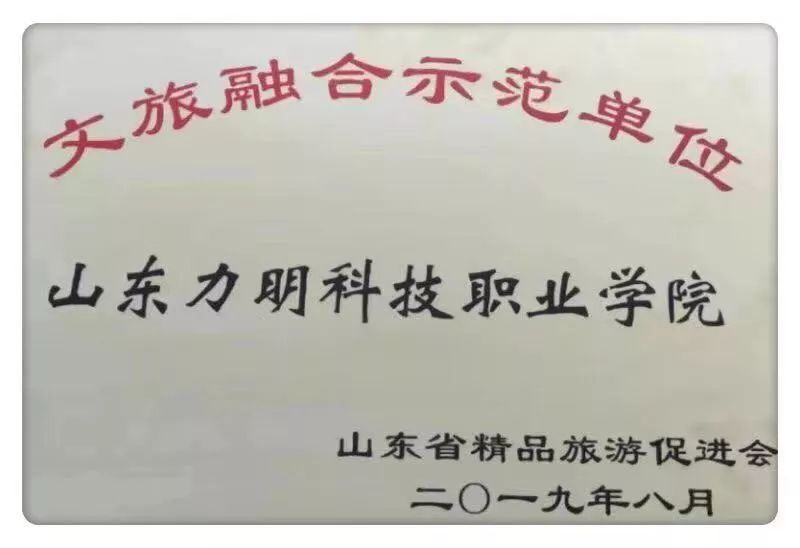 文旅融合示范单位
山东力明科技职业学院
山东省精品旅游促进会
二〇一九年八月